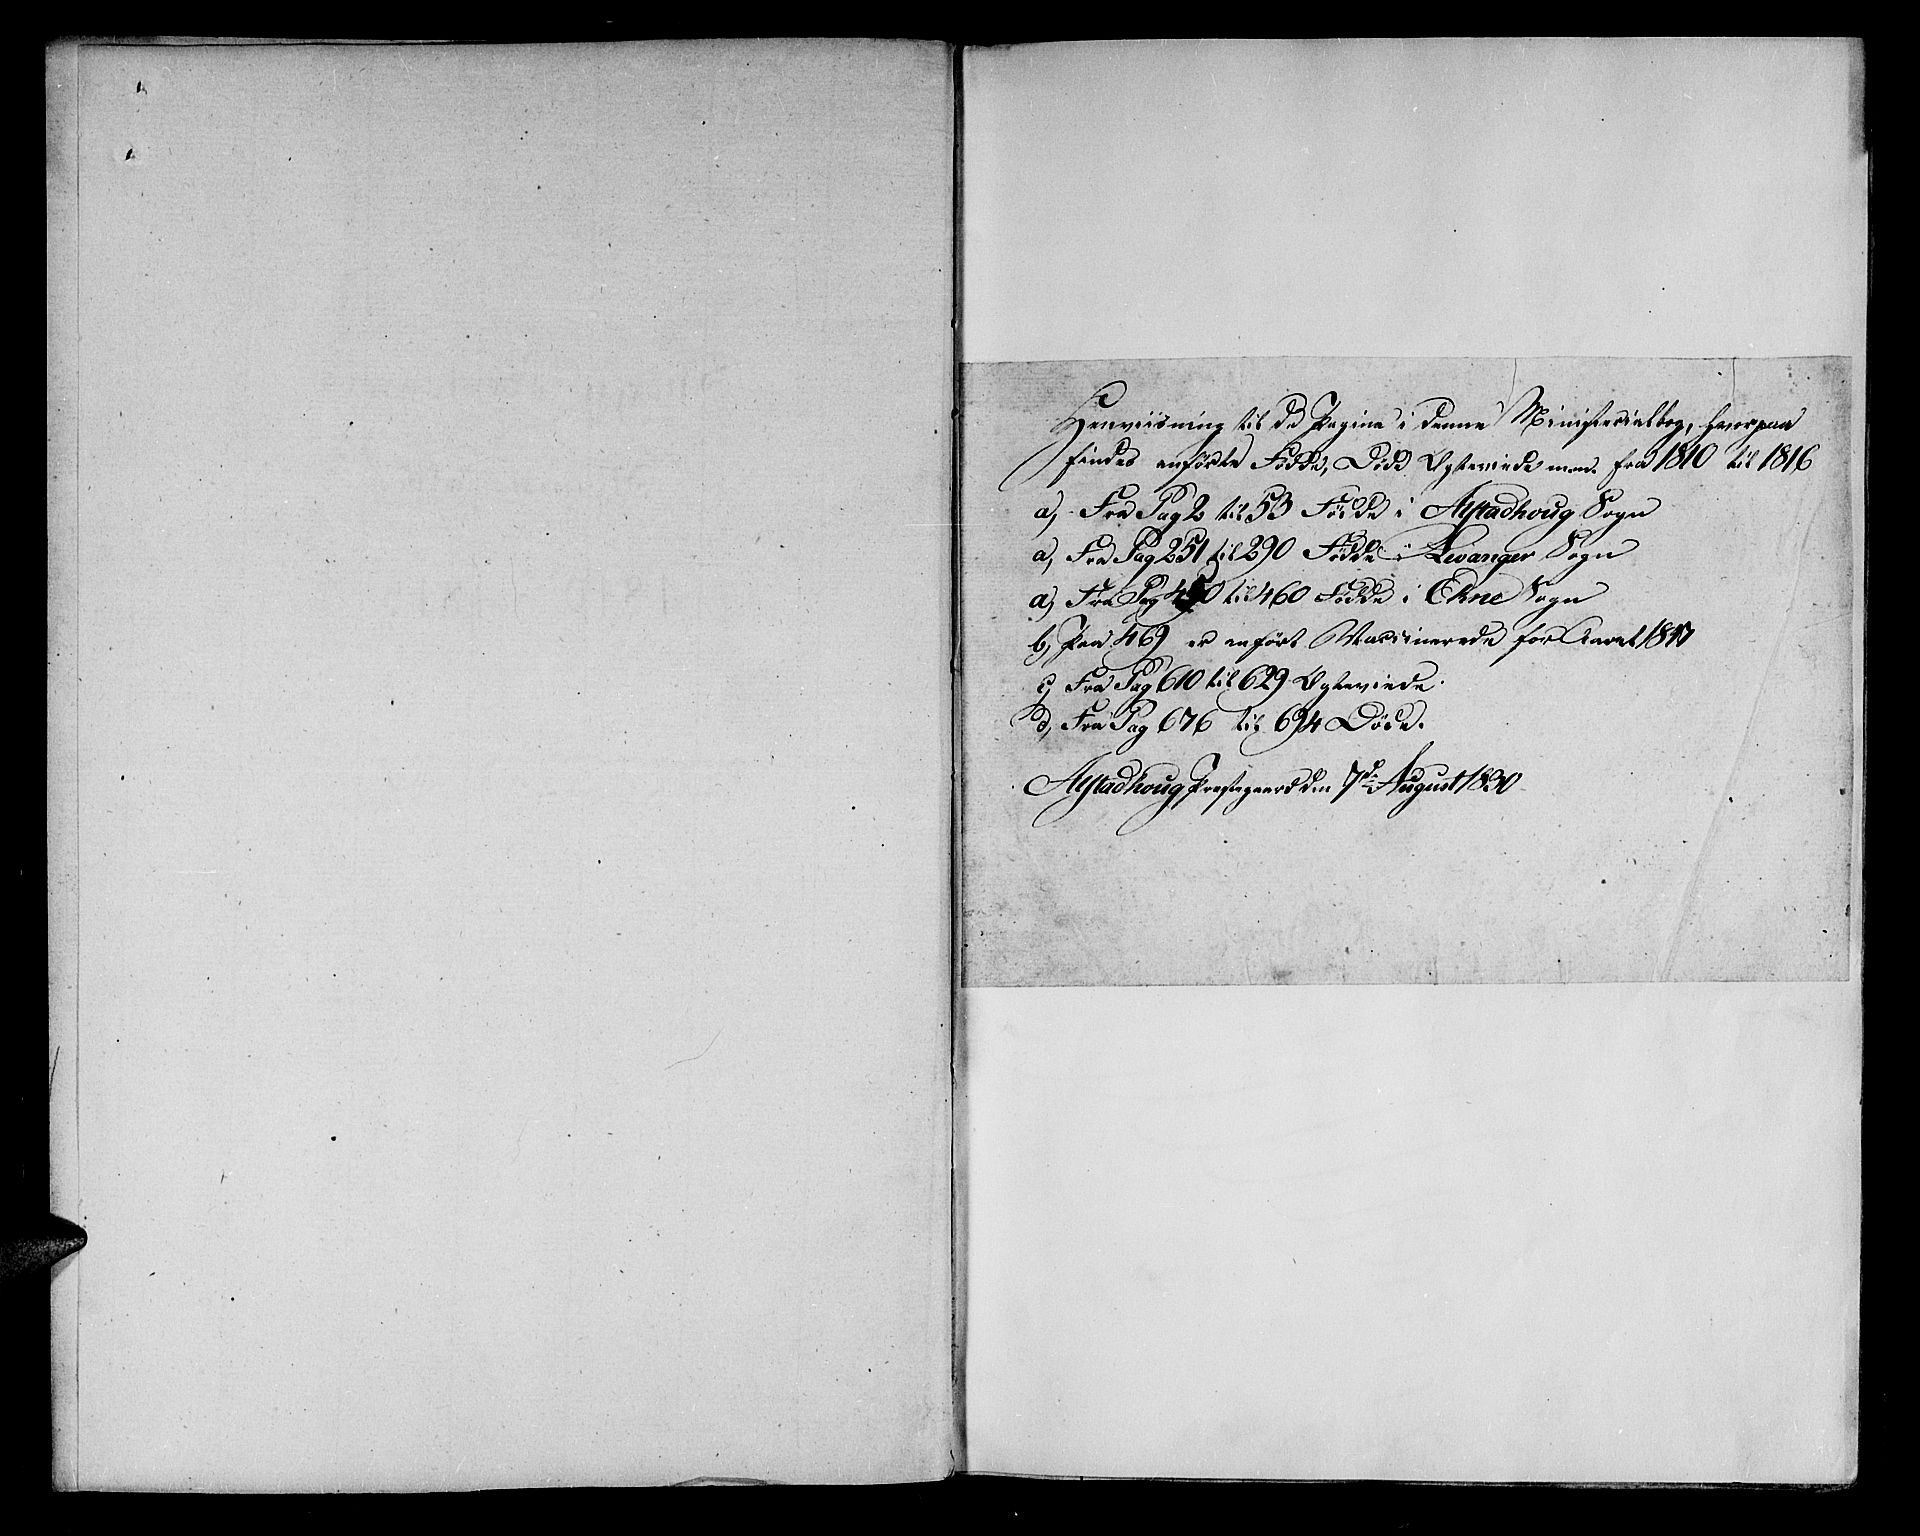 Henviisning til de Pagina i denne Ministerialbog, hvorpaa
findes anførte Fødde, Døde Ægteviede m.m. fra 1810 til 1816
a, Fra Pag 2 til 53 Fødde i Alstadhoug Sogn
a, Fra Pag 251 til 290 Fødde i Levanger Sogn
a, Fra Pag til 460 Fødde i Ekne Sogn
b, Paa 469 er anført Vaccinerede for Aaret
c, Fra Pag 610 til 629 Ægteviede.
d, Fra Pag 676 til 694 Døde.
Alstadhoug Præstegaard den 7de August 1830